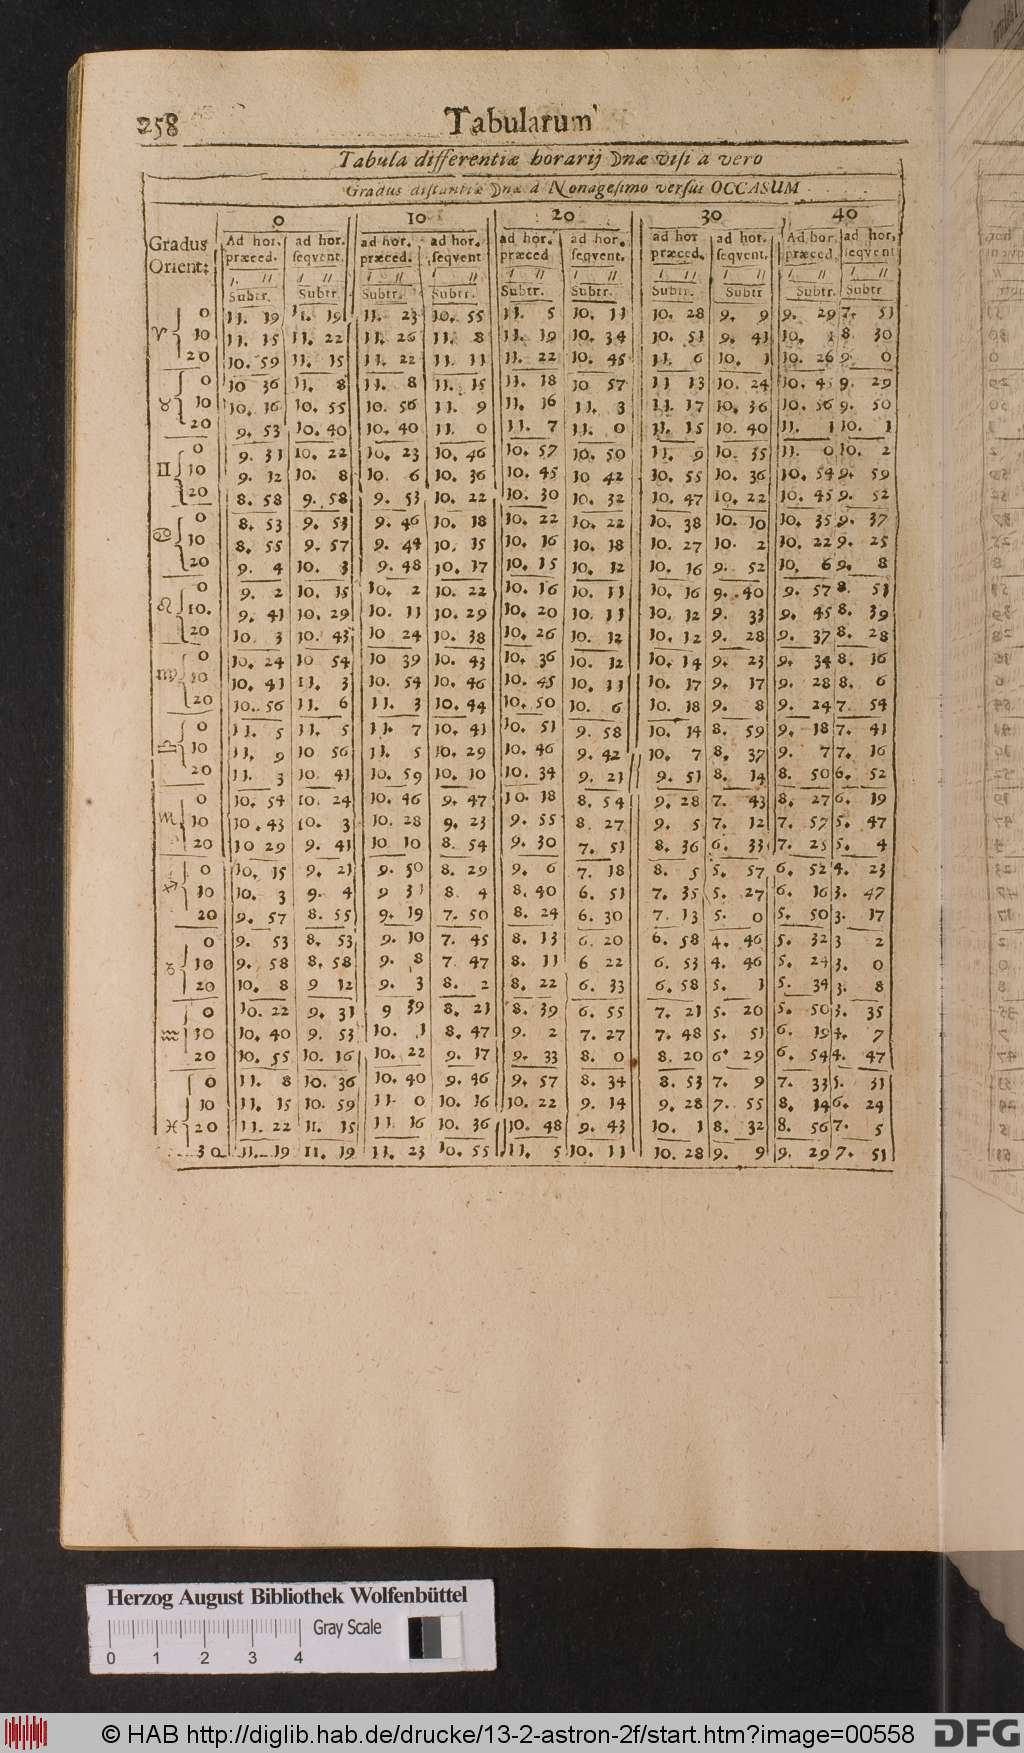 258 Tabularum
Tabula differentiæ horarij ☽næ visi a vero
Gradus distantiæ ☽næ à Nonagesimo versus OCCASUM
0 10 20 30 40
Gradus Orient: Ad hor. præced. ad hor. seqvent. ad hor. præced. ad hor. seqvent ad hor. præced ad hor. seqvent. ad hor præced. ad hor. seqvent. Ad hor. præced. ad hor, seqvent
ı ıı ı ıı ı ıı ı ıı ı ıı ı ıı ı ıı ı ıı ı ıı ı ıı
Subtr. Subtr. Subtr. Subtr. Subtr. Subtr. Subtr. Subtr Subtr. Subtr
♈ 0 11. 19 11. 19 11. 23 10. 55 11. 5 10. 11 10. 28 9. 9 9. 29 7. 51
10 11. 15 11. 22 11. 26 11. 8 11. 19 10. 34 10. 51 9. 41 10. 1 8. 30
20 10. 59 11. 15 11. 22 11 11 11. 22 10. 45 11. 6 10. 1 10. 26 9. 0
♉ 0 10 36 11. 8 11. 8 11. 15 11. 18 10 57 11 13 10. 24 10. 45 9. 29
10 10. 16 10. 55 10. 56 11. 9 11. 16 11. 3 11. 17 10. 36 10. 56 9. 50
20 9. 53 10. 40 10. 40 11. 0 11. 7 11. 0 11. 15 10. 40 11. 1 10. 1
♊ 0 9. 31 10. 22 10. 23 10. 46 10. 57 10. 50 11. 9 10. 35 11. 0 10. 2
10 9. 12 10. 8 10. 6 10. 36 10. 45 10 42 10. 55 10. 36 10. 54 9. 59
20 8. 58 9. 58 9. 53 10. 22 10. 30 10. 32 10. 47 10. 22 10. 45 9. 52
♋ 0 8. 53 9. 53 9. 46 10. 18 10. 22 10. 22 10. 38 10. 10 10. 35 9. 37
10 8. 55 9. 57 9. 44 10. 15 10. 16 10. 18 10. 27 10. 2 10. 22 9. 25
20 9. 4 10. 3 9. 48 10. 17 10. 15 10. 12 10. 16 9. 52 10. 6 9. 8
♌ 0 9. 2 10. 15 10. 2 10. 22 10. 16 10. 11 10. 16 9. 40 9. 57 8. 51
10. 9. 41 10. 29 10. 11 10. 29 10. 20 10. 11 10. 12 9. 33 9. 45 8. 39
20 10. 3 10. 43 10 24 10. 38 10. 26 10. 12 10. 12 9. 28 9. 37 8. 28
♍ 0 10. 24 10 54 10 39 10. 43 10. 36 10. 12 10. 14 9. 23 9. 34 8. 16
10 10. 41 11. 3 10. 54 10. 46 10. 45 10. 11 10. 17 9. 17 9. 28 8. 6
20 10. 56 11. 6 11. 3 10. 44 10. 50 10. 6 10. 18 9. 8 9. 24 7. 54
♎ 0 11. 5 11. 5 11. 7 10. 41 10. 51 9. 58 10. 14 8. 59 9. 18 7. 41
10 11. 9 10 56 11. 5 10. 29 10. 46 9. 42 10. 7 8. 37 9. 7 7. 16
20 11. 3 10. 41 10. 59 10. 10 10. 34 9. 21 9. 51 8. 14 8. 50 6. 52
♏ 0 10. 54 10. 24 10. 46 9. 47 10. 18 8. 54 9. 28 7. 43 8. 27 6. 19
10 10. 43 10. 3 10. 28 9. 23 9. 55 8. 27 9. 5 7. 12 7. 57 5. 47
20 10 29 9. 41 10 10 8. 54 9. 30 7. 51 8. 36 6. 33 7. 25 5. 4
♐ 0 10. 15 9. 21 9. 50 8. 29 9. 6 7. 18 8. 5 5. 57 6. 52 4. 23
10 10. 3 9. 4 9 31 8. 4 8. 40 6. 51 7. 35 5. 27 6. 16 3. 47
20 9. 57 8. 55 9. 19 7. 50 8. 24 6. 30 7. 13 5. 0 5. 50 3. 17
♑ 0 9. 53 8. 53 9. 10 7. 45 8. 13 6. 20 6. 58 4. 46 5. 32 3 2
10 9. 58 8. 58 9. 8 7. 47 8. 11 6 22 6. 53 4. 46 5. 24 3. 0
20 10. 8 9 12 9. 3 8. 2 8. 22 6. 33 6. 58 5. 1 5. 34 3. 8
♒ 0 10. 22 9. 31 9 39 8. 21 8. 39 6. 55 7. 21 5. 20 5. 50 3. 35
10 10. 40 9. 53 10. 1 8. 47 9. 2 7. 27 7. 48 5. 51 6. 19 4. 7
20 10. 55 10. 16 10. 22 9. 17 9. 33 8. 0 8. 20 6. 29 6. 54 4. 47
♓ 0 11. 8 10. 36 10. 40 9. 46 9. 57 8. 34 8. 53 7. 9 7. 33 5. 31
10 11. 15 10. 59 11. 0 10. 16 10. 22 9. 14 9. 28 7. 55 8. 14 6. 24
20 11. 22 11. 15 11 16 10. 36 10. 48 9. 43 10. 1 8. 32 8. 56 7. 5
30 11. 19 11. 19 11. 23 10. 55 11. 5 10. 11 10. 28 9. 9 9. 29 7. 51
Herzog August Bibliothek Wolfenbüttel
Gray Scale
0 1 2 3 4
© HAB http://diglib.hab.de/drucke/13-2-astron-2f/start.htm?image=00558 DFG